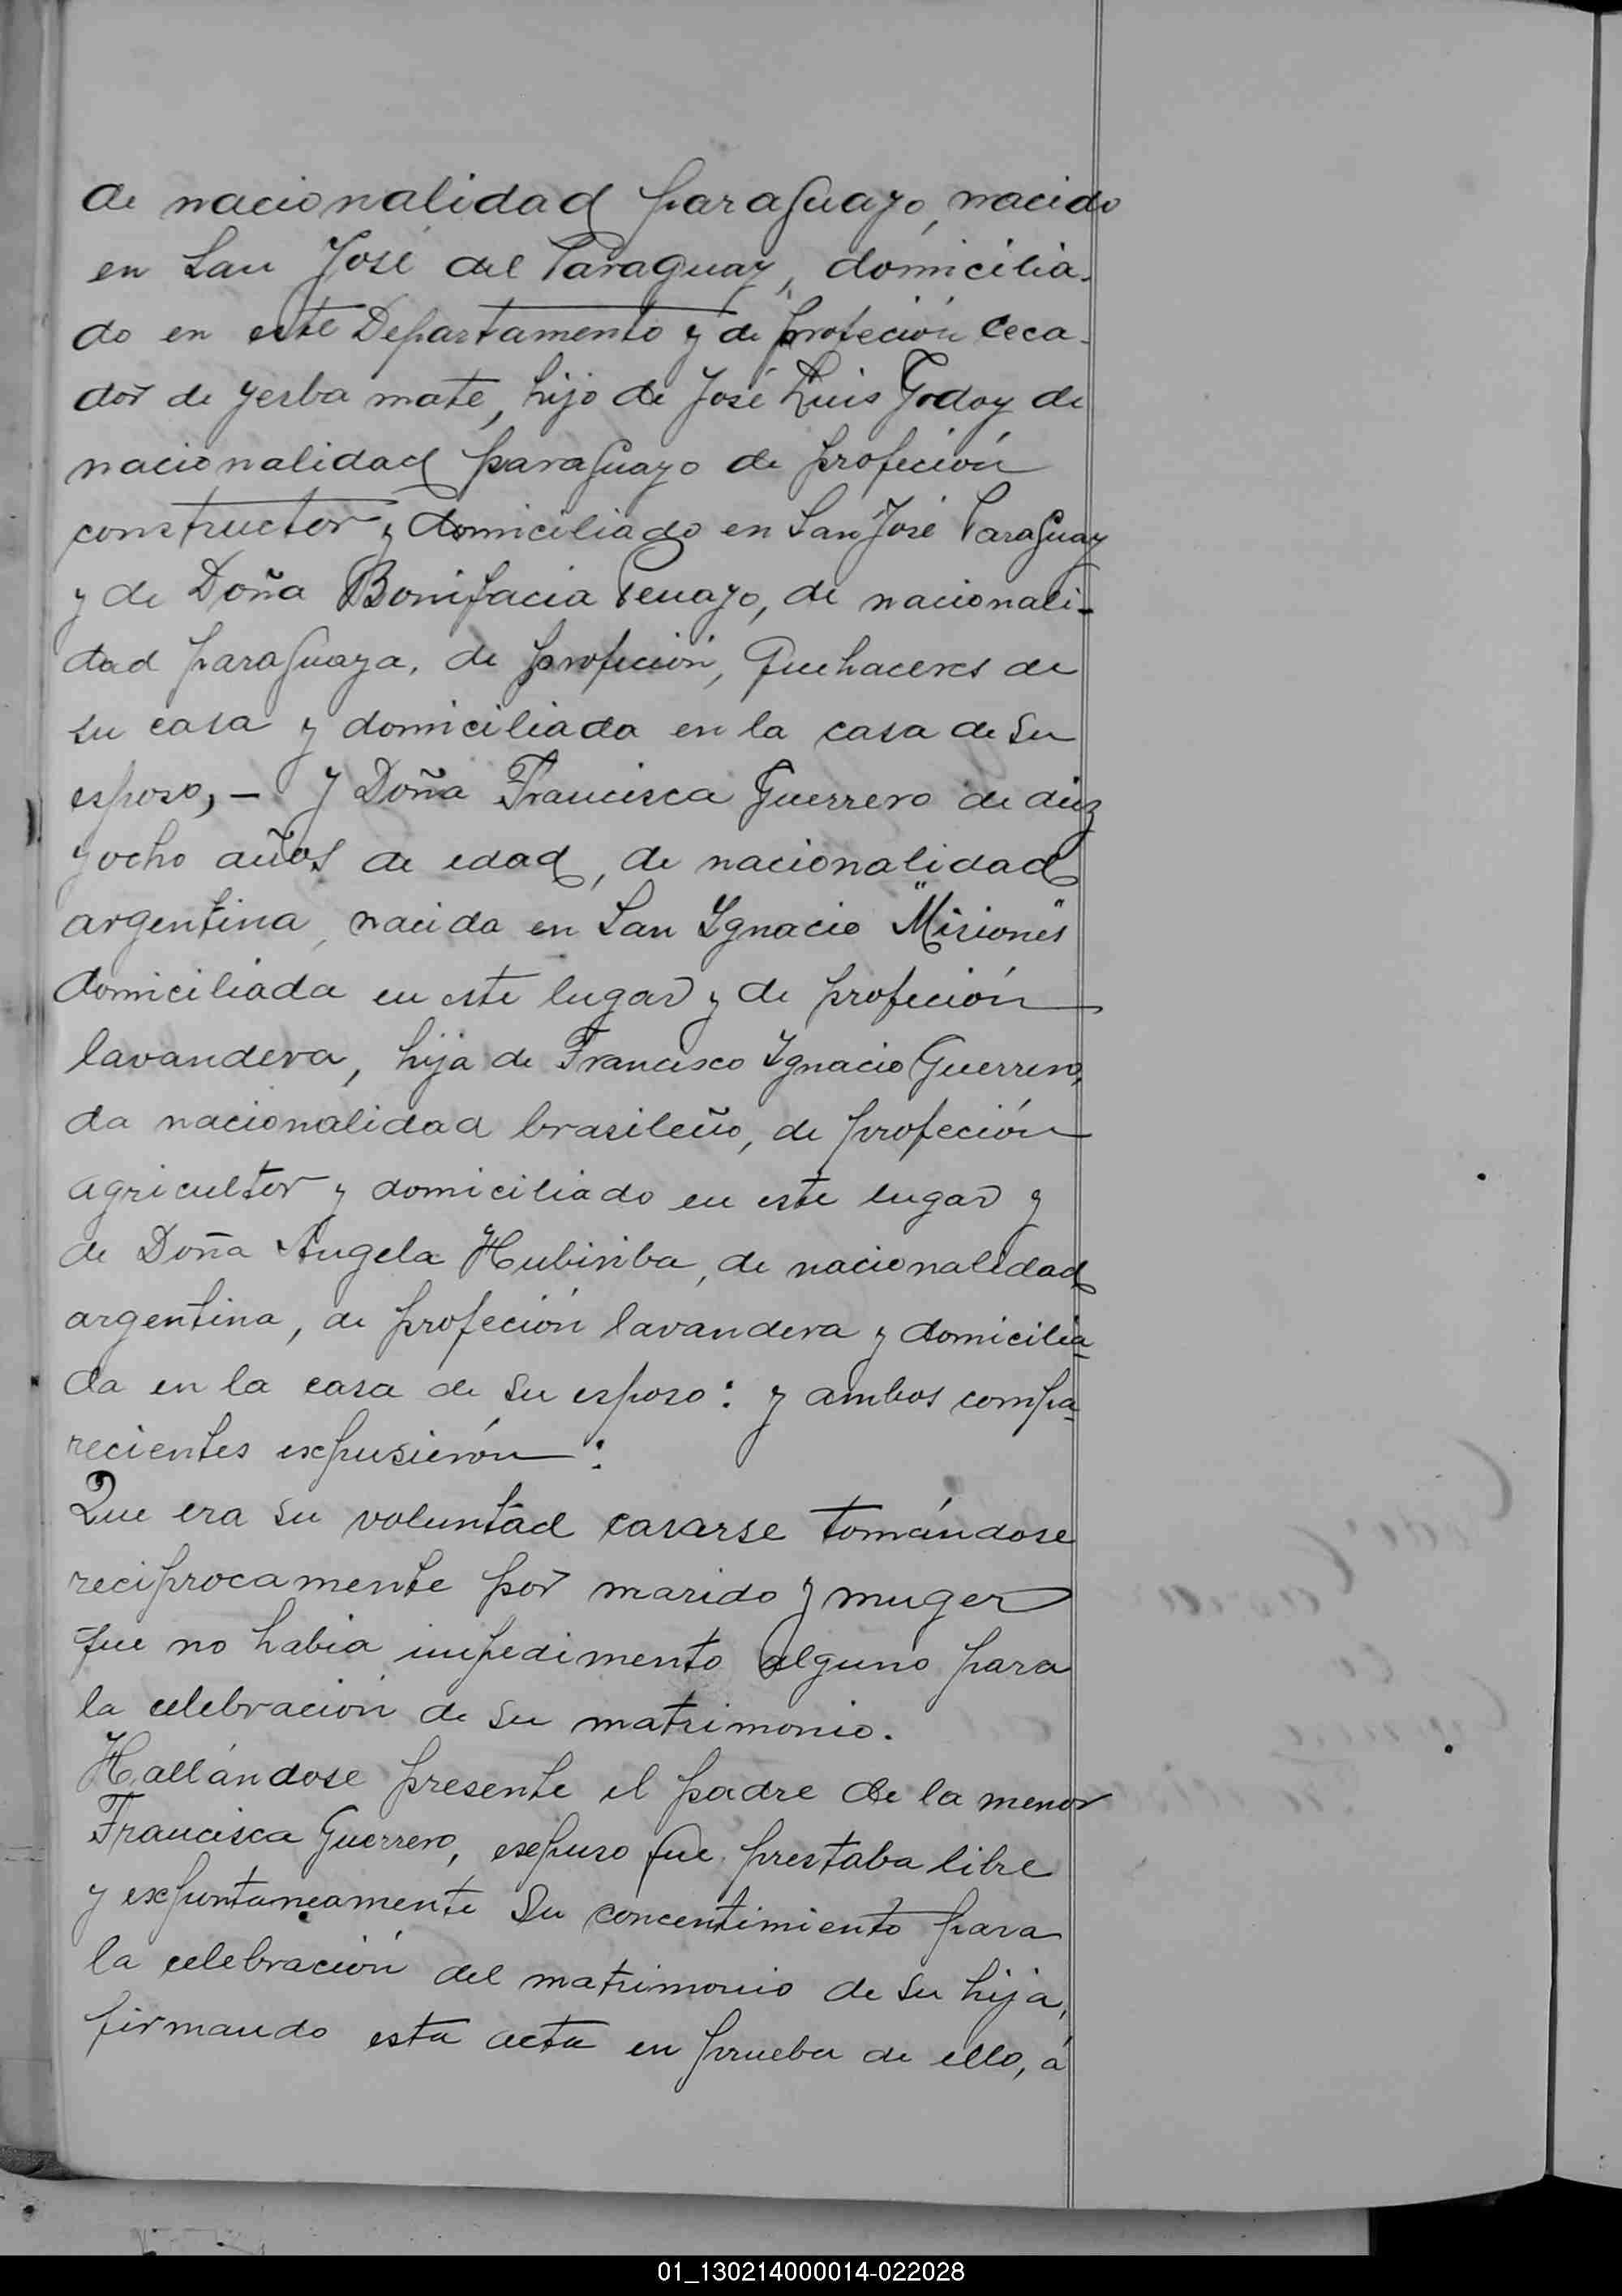 de nacionalidad paraguayo, nacido
en San José del Paraguay, domicilia-
do en este Departamento y de profeción ceca-
dor de yerba mate, hijo de José Luis Godoy de
nacionalidad paraguayo de profeción
constructor y domiciliado en San José Paraguay
y de Doña Bonifacia Penayo, de nacionali-
dad paraguaya, de profeción, quehaceres de
su casa y domiciliada en la casa de su
esposo, – Y Doña Francisca Guerrero de diez
y ocho años de edad, de nacionalidad
argentina, nacida en San Ygnacio "Misiones"
domiciliada en este lugar y de profeción
lavandera, hija de Francisco Ygnacio Guerrero,
da nacionalidad brasileño, de profeción
agricultor y domiciliado en este lugar y
de Doña Angela, de nacionalidad
argentina, de profeción lavandera y domicilia-
da en la casa de su esposo: y ambos compa-
recientes expusierón:
Que era su voluntad casarse tomándose
reciprocamente por marido y muger
que no habia impedimento alguno para
la celebración de su matrimonio.
Hallándose presente el padre de la menor
Francisca Guerrero, expuso que prestaba libre
y expontaneamente su concentimiento para
la celebración del matrimonio de su hija,
firmando esta acta en prueba de ello, á
01_130214000014-022028